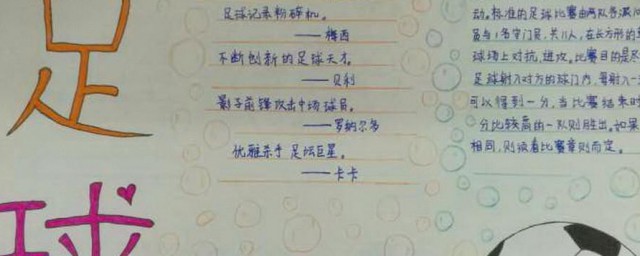 足
球
足球记录粉碎机。
——梅西
不断创新的足球天才。
——贝利
影子前锋攻击中场球员。
——罗纳尔多
优雅杀手 足坛巨星。
——卡卡
动。标准的足球比赛由两队各派10
员与1名守门员，共11人，在长方形的
球场上对抗，进攻。比赛目的是尽
足球射入对方的球门内，每射入一
可以得到一分，当比赛结束时
分比较高的一队则胜出。如果
相同，则须看比赛章则而定。